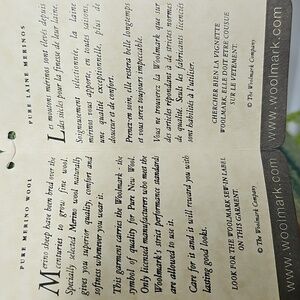 PURE MERINO WOOL
Merino sheep have been bred over the
centuries to grow fine wool.
Specially selected Merino wool naturally
gives you superior quality, comfort and
softness whenever you wear it.
This garment carries the Woolmark - the
symbol of quality for Pure New Wool.
Only licensed manufacturers who meet the
Woolmark's strict performance standards
are allowed to use it.
Care for it and it will reward you with
lasting good looks.
LOOK FOR THE WOOLMARK SEWN IN LABEL
ON THIS GARMENT.
© The Woolmark Company
www.woolmark.com
PURE LAINE MERINOS
Les moutons merinos sont élevés depuis
des siècles pour la finesse de leur laine.
Soigneusement sélectionnée, la laine
merinos vous apporte, en toutes saisons,
une qualité exceptionnelle, faite de
douceur et de confort.
Prenez-en soin, elle restera belle longtemps
et vous serez toujours impeccable.
Vous ne trouverez la Woolmark que sur
des articles répondant à de strictes normes
de qualité. Seuls les fabricants licenciés
sont habilités à l'utiliser.
CHERCHER BIEN LA VIGNETTE
WOOLMARK. ELLE DOIT ETRE COUSUE
SUR LE VETEMENT.
© The Woolmark Company
www.woolmark.com